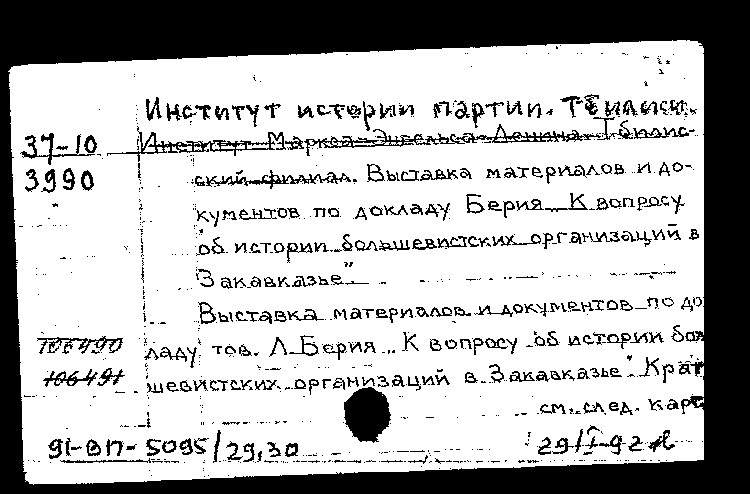 Институт истории партии. Тбилиси.
37-10 Институт Маркса-Энгельса-Ленина. Тбилис-
3990 ский филиал. Выставка материалов и до-
кументов по докладу Берия „К вопросу
об истории большевистских организаций в
Закавказье"
Выставка материалов и документов по до
106490 ладу тов. Л. Берия „К вопросу об истории бол
106491 шевистских организаций в Закавказье". Крат
см. след. карт
91-ВП-5095/29,30 29/I-92